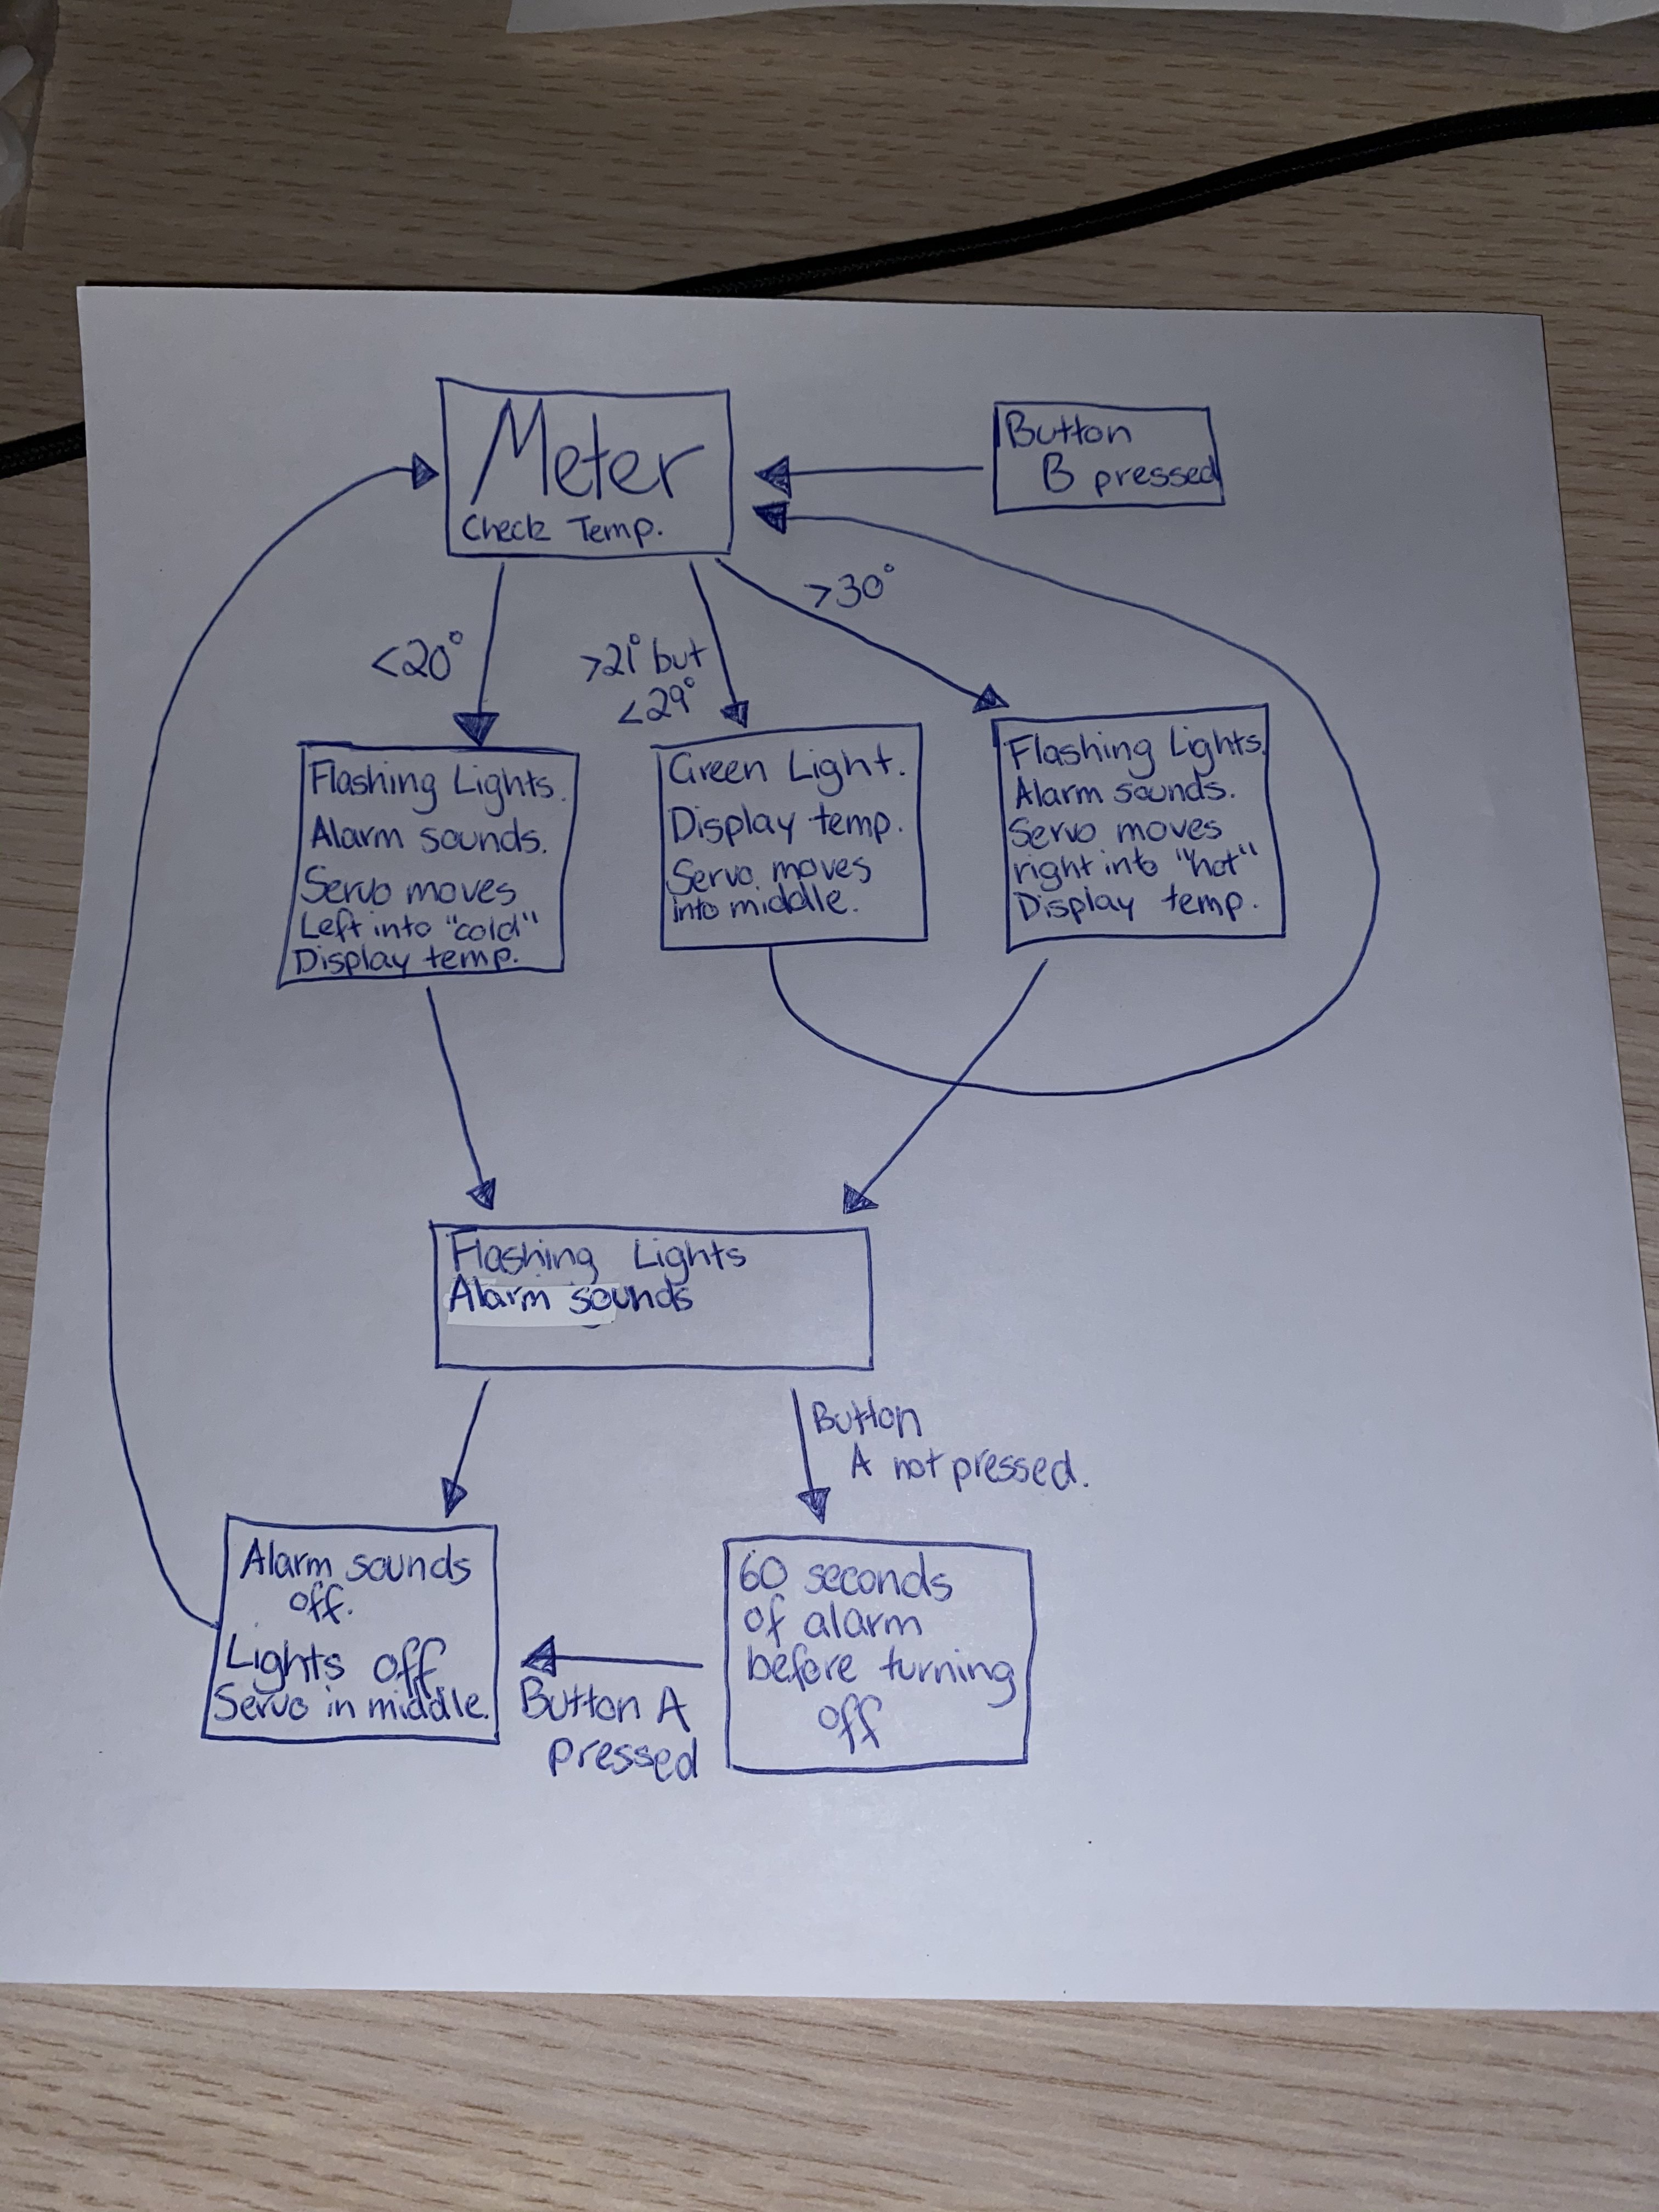 Meter
Check Temp.
Button
B pressed
<20°
>21° but
<29°
>30°
Flashing Lights.
Alarm sounds.
Servo moves
Left into "cold"
Display temp.
Green Light.
Display temp.
Servo moves
into middle.
Flashing Lights.
Alarm sounds.
Servo moves
right into "hot"
Display temp.
Flashing Lights
Alarm sounds
Button
A not pressed.
Alarm sounds
off.
Lights off
Servo in middle.
Button A
pressed
60 seconds
of alarm
before turning
off